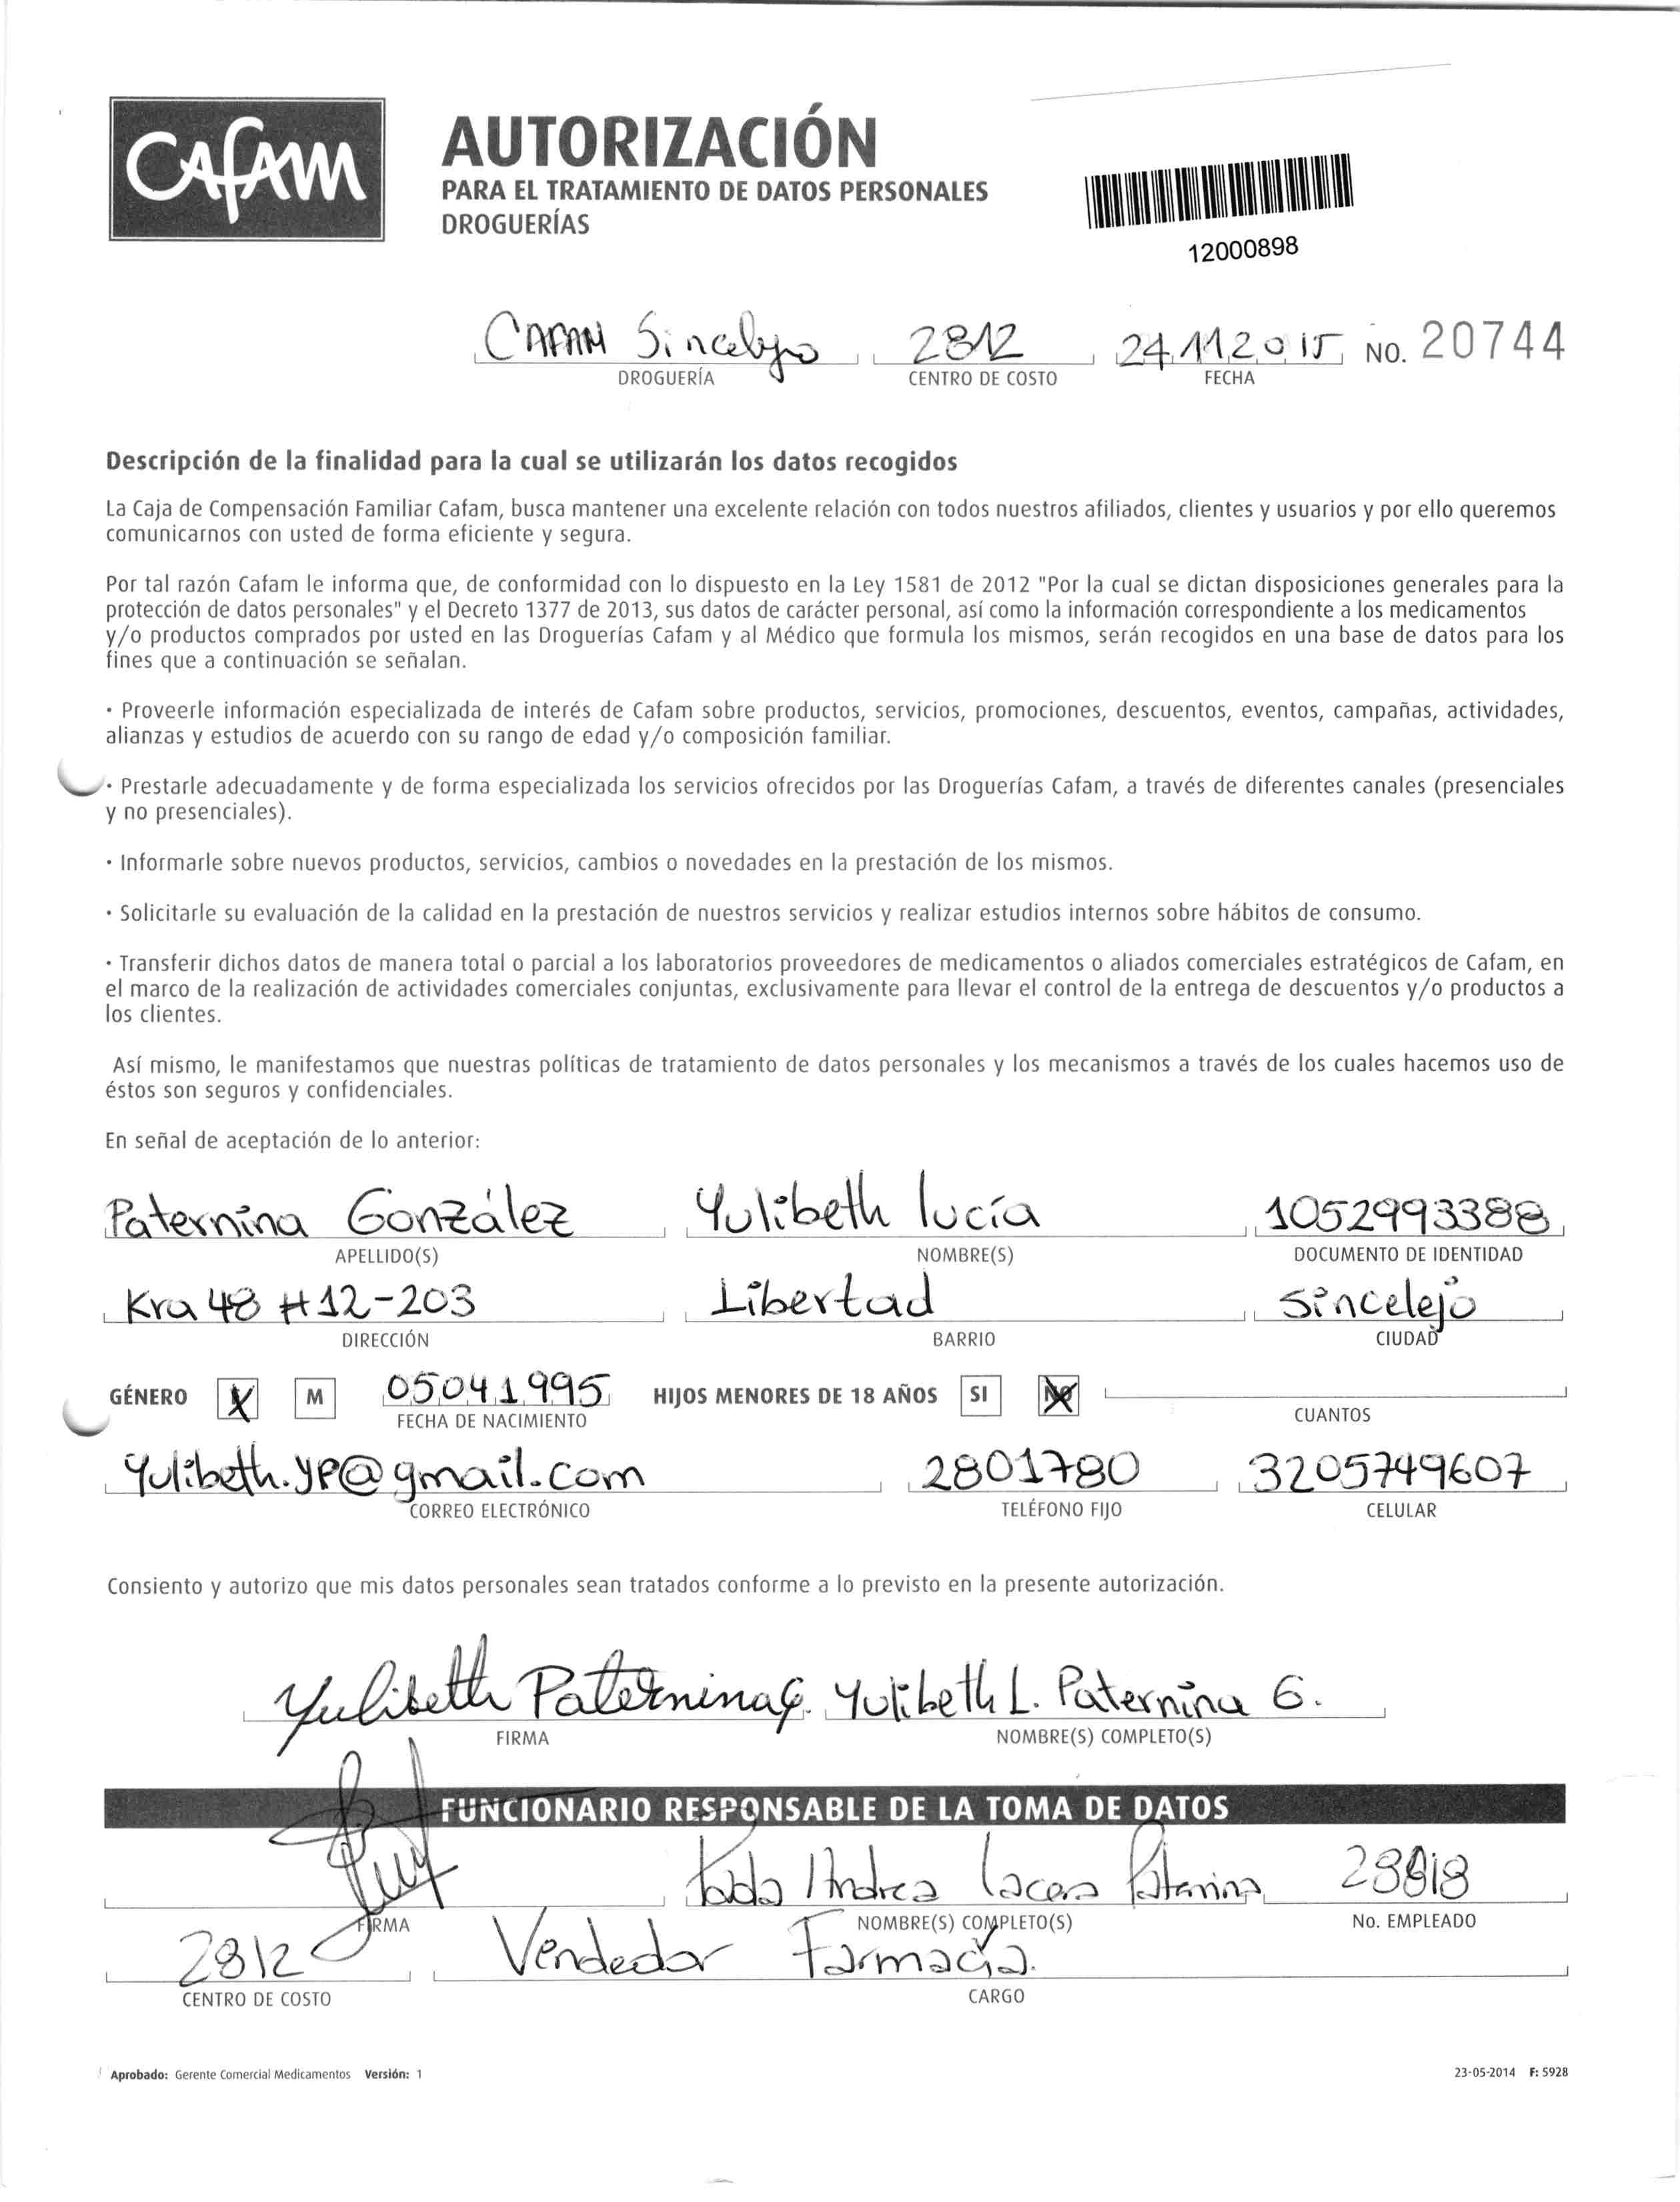 CAFAM
AUTORIZACIÓN
PARA EL TRATAMIENTO DE DATOS PERSONALES
DROGUERÍAS
12000898
CAFAM Sincelejo 2812 24 11 2015 NO. 20744
DROGUERÍA CENTRO DE COSTO FECHA
Descripción de la finalidad para la cual se utilizarán los datos recogidos
La Caja de Compensación Familiar Cafam, busca mantener una excelente relación con todos nuestros afiliados, clientes y usuarios y por ello queremos
comunicarnos con usted de forma eficiente y segura.
Por tal razón Cafam le informa que, de conformidad con lo dispuesto en la Ley 1581 de 2012 "Por la cual se dictan disposiciones generales para la
protección de datos personales" y el Decreto 1377 de 2013, sus datos de carácter personal, así como la información correspondiente a los medicamentos
y/o productos comprados por usted en las Droguerías Cafam y al Médico que formula los mismos, serán recogidos en una base de datos para los
fines que a continuación se señalan.
· Proveerle información especializada de interés de Cafam sobre productos, servicios, promociones, descuentos, eventos, campañas, actividades,
alianzas y estudios de acuerdo con su rango de edad y/o composición familiar.
· Prestarle adecuadamente y de forma especializada los servicios ofrecidos por las Droguerías Cafam, a través de diferentes canales (presenciales
y no presenciales).
· Informarle sobre nuevos productos, servicios, cambios o novedades en la prestación de los mismos.
· Solicitarle su evaluación de la calidad en la prestación de nuestros servicios y realizar estudios internos sobre hábitos de consumo.
· Transferir dichos datos de manera total o parcial a los laboratorios proveedores de medicamentos o aliados comerciales estratégicos de Cafam, en
el marco de la realización de actividades comerciales conjuntas, exclusivamente para llevar el control de la entrega de descuentos y/o productos a
los clientes.
Así mismo, le manifestamos que nuestras políticas de tratamiento de datos personales y los mecanismos a través de los cuales hacemos uso de
éstos son seguros y confidenciales.
En señal de aceptación de lo anterior:
Paternina González Yulibeth lucía 1052993388
APELLIDO(S) NOMBRE(S) DOCUMENTO DE IDENTIDAD
Kra 48 # 12-203 Libertad Sincelejo
DIRECCIÓN BARRIO CIUDAD
GÉNERO X M 05041995 HIJOS MENORES DE 18 AÑOS SI NO
FECHA DE NACIMIENTO CUANTOS
Yulibeth.yp@gmail.com 2801780 3205749607
CORREO ELECTRÓNICO TELÉFONO FIJO CELULAR
Consiento y autorizo que mis datos personales sean tratados conforme a lo previsto en la presente autorización.
Yulibeth Paternina G. Yulibeth L. Paternina G.
FIRMA NOMBRE(S) COMPLETO(S)
FUNCIONARIO RESPONSABLE DE LA TOMA DE DATOS
Andrea Paternina
FIRMA NOMBRE(S) COMPLETO(S) No. EMPLEADO
2812 Vendedor Farmacia.
CENTRO DE COSTO CARGO
Aprobado: Gerente Comercial Medicamentos Versión: 1 23-05-2014 F: 5928